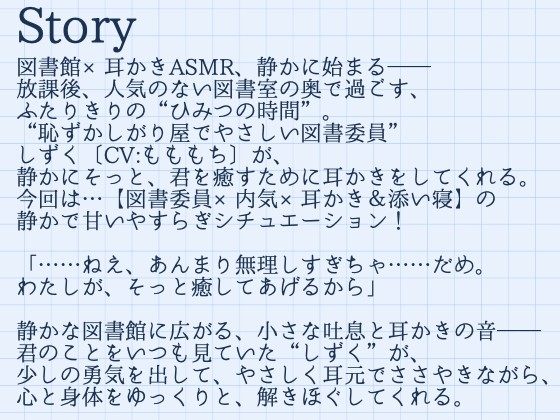 Story
図書館× 耳かきASMR、静かに始まる――
放課後、人気のない図書室の奥で過ごす、
ふたりきりの“ひみつの時間”。
“恥ずかしがり屋でやさしい図書委員”
しずく〔CV:もももち〕が、
静かにそっと、君を癒すために耳かきをしてくれる。
今回は…【図書委員× 内気× 耳かき＆添い寝】の
静かで甘いやすらぎシチュエーション！
「……ねえ、あんまり無理しすぎちゃ……だめ。
わたしが、そっと癒してあげるから」
静かな図書館に広がる、小さな吐息と耳かきの音――
君のことをいつも見ていた“しずく”が、
少しの勇気を出して、やさしく耳元でささやきながら、
心と身体をゆっくりと、解きほぐしてくれる。